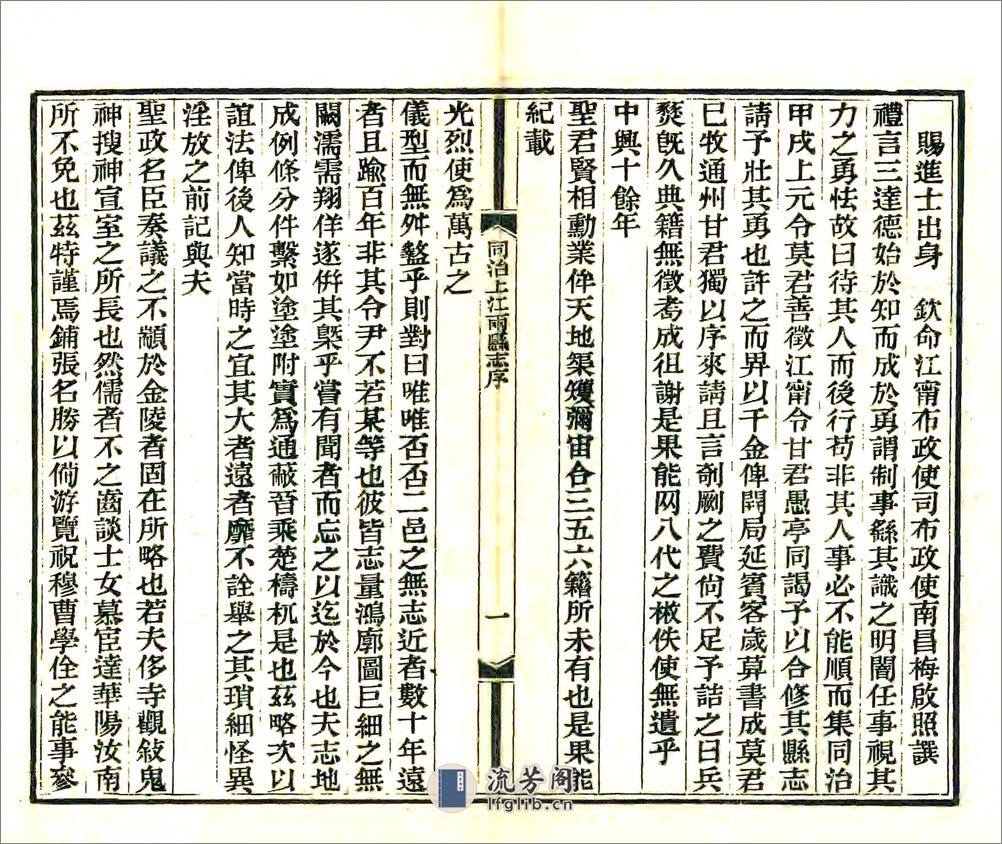 賜進士出身 欽命江甯布政使司布政使南昌梅啟照譔
禮言三達德始於知而成於勇謂制事繇其識之明闇任事視其
力之勇怯故曰待其人而後行苟非其人事必不能順而集同治
甲戌上元令莫君善徵江甯令甘君愚亭同謁予以合修其縣志
請予壯其勇也許之而畀以千金俾開局延賓客歲莫書成莫君
已牧通州甘君獨以序來請且言剞劂之費尙不足予詰之曰兵
燹旣久典籍無徵耇成徂謝是果能网八代之楸佚使無遺乎
中興十餘年
聖君賢相勳業侔天地榘矱彌宙合三五六籍所未有也是果能
紀載
光烈使爲萬古之
同治上江兩縣志序
一
儀型而無舛盭乎則對曰唯唯否否二邑之無志近者數十年遠
者且踰百年非其令尹不若某等也彼皆志量鴻廓圖巨細之無
闕濡需翔佯遂倂其槩乎嘗有聞者而忘之以迄於今也夫志地
成例條分件繫如塗塗附實爲通蔽晉乘楚檮杌是也茲略次以
誼法俾後人知當時之宜其大者遠者靡不詮舉之其瑣細怪異
淫放之前記與夫
聖政名臣奏議之不顓於金陵者固在所略也若夫侈寺觀敍鬼
神搜神宣室之所長也然儒者不之齒談士女慕宦達華陽汝南
所不免也茲特謹焉鋪張名勝以倘游覽祝穆曹學佺之能事參
流芳阁
lfglib.cn